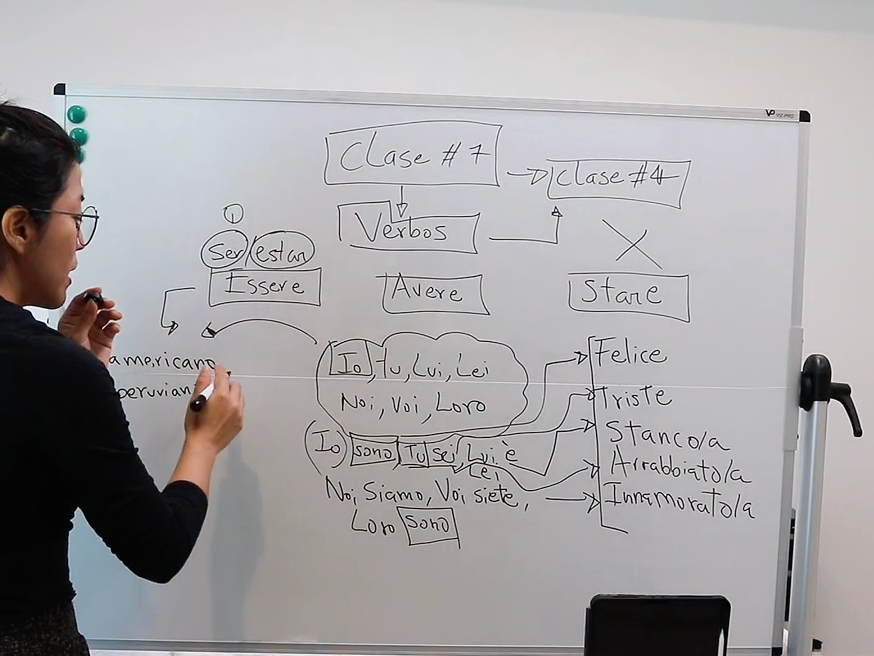 Clase #7
Clase #4
Verbos
①
ser/estar
Essere
Avere
Stare
americano
peruviani
Io, tu, Lui, Lei
Noi, Voi, Loro
Felice
Triste
Stanco/a
Arrabbiato/a
Innamorato/a
(Io) sono, Tu sei, Lui è
Lei
Noi Siamo, Voi siete,
Loro sono